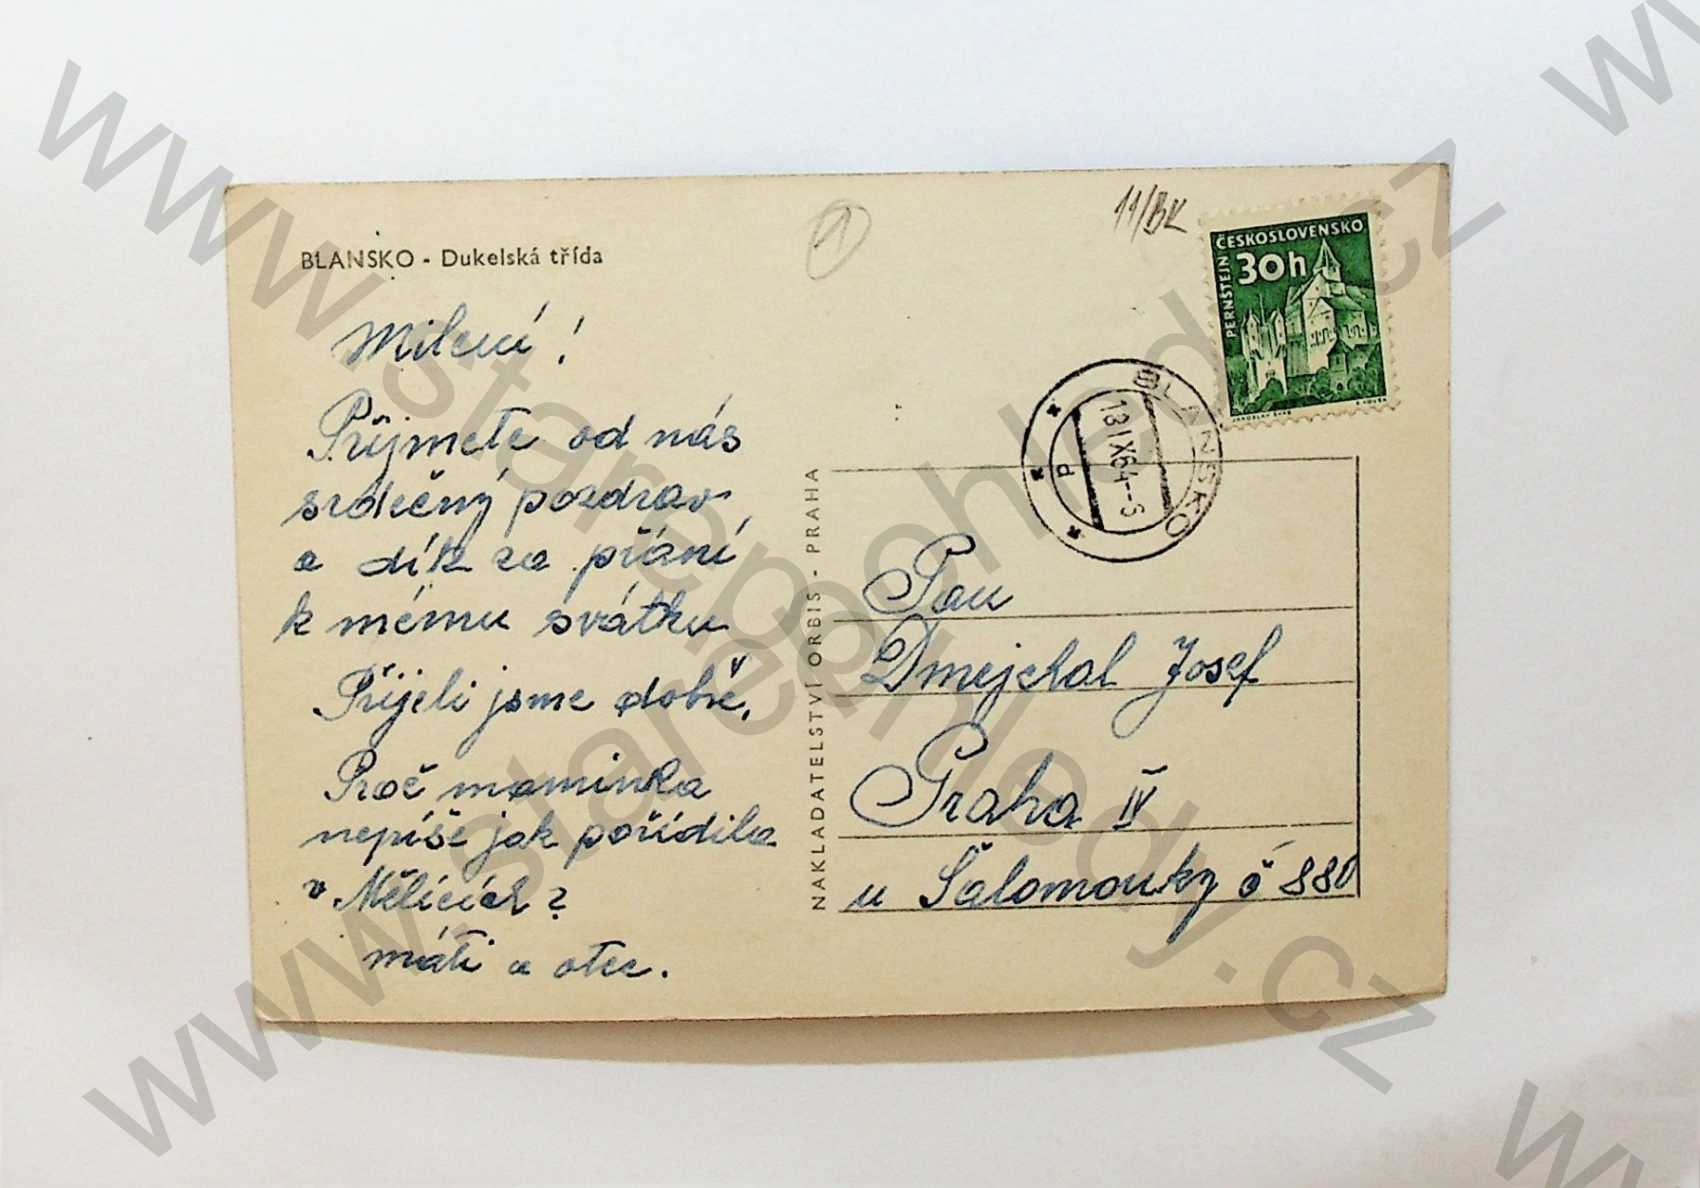 BLANSKO - Dukelská třída
Milení!
Přijmete od nás
srdečný pozdrav
a dík za přání
k mému svátku
Přijeli jsme dobře,
Proč maminka
nepíše jak pořídila
v Mělicích?
máti a otec.
NAKLADATELSTVÍ ORBIS - PRAHA
1
11/BK
ČESKOSLOVENSKO
PERNŠTEJN
30h
BLANSKO
18IX64--5
Pan
Dmejchal Josef
Praha IV
u Šalomouky č 880
www.starepohledy.cz
www.starepohledy.cz